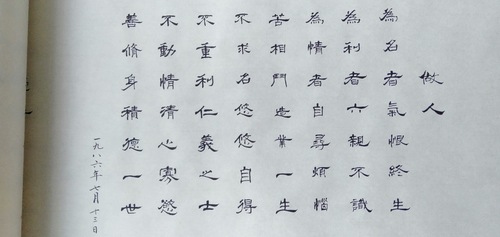 做人
為名者氣恨終生
為利者六親不識
為情者自尋煩惱
苦相鬥造業一生
不求名悠悠自得
不重利仁義之士
不動情清心寡慾
善修身積德一世
一九八六年七月十三日